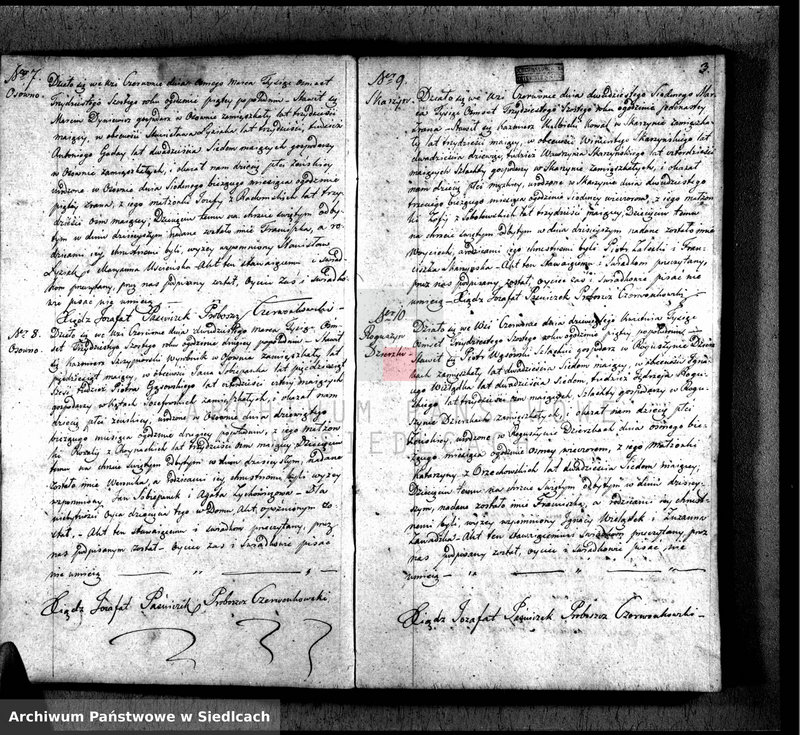 Nro 7.
Osowno.
Działo się we wsi Czerwonce dnia ósmego marca Tysiąc ośmset
Trzydziestego Szóstego roku o godzinie piątey popołudniu. Stawił się
Marcin gospodarz w Osownie zamięszkały lat trzydzieści
maiący, w obecności Stanisława lat trzydzieści, tudzież
Antoniego lat dwadzieścia Siedem maiących gospodarzy
w Osownie zamięszkałych, i okazał nam dziecię płci żeńskiey
urodzone w Osownie dnia Siódmego bieżącego miesiąca o godzinie
piątey zrana, z iego małżonki Józefy z lat trzy-
dzieści ośm maiącey; Dziecięciu temu na chrzcie świętym odby-
tym w dniu dzisieyszym nadane zostało imie Franciszka, a ro-
dzicami iey chrzestnemi byli, wyżey wspomniony Stanisław
i Maryanna Akt ten stawaiącemu i świad-
kom przeczytany, przez nas podpisany został, Oyciec zaś i świadko-
wie pisać nie umieią
Xiądz Jozafat Paświczek Proboszcz Czerwonkowski
Nro 8.
Osowno.
Działo się we wsi Czerwonce dnia dwudziestego marca Tysiąc Ośm-
set Trzydziestego Szóstego roku o godzinie drugiey popołudniu. Stawił
się Kazimierz wyrobnik w Osownie zamięszkały lat
pięćdziesiąt maiący, w obecności Jana Sobiepanka lat pięćdziesiąt
tudzież Piotra lat trzydzieści cztery maiących
gospodarzy, w zamięszkałych, i okazał nam
dziecię płci żeńskiey, urodzone w Osownie dnia dziewiątego
bieżącego miesiąca o godzinie drugiey popołudniu, z iego małżon-
ki Rozalii z lat trzydzieści ośm maiącey Dziecięciu
temu na chrzcie świętym odbytym w dniu dzisieyszym, nadane
zostało imie Weronika, a rodzicami iey chrzestnemi, byli wyżey
wspomniony Jan Sobiepanek i Agata
Oyca dziecięcia tego w Domu, Akt, opóźnionym zo-
stał. Akt ten stawaiącemu i świadkom przeczytany, przez
nas podpisanym został. Oyciec zaś i świadkowie pisać
nie umieią
Xiądz Jozafat Paświczek Proboszcz Czerwonkowski
3.
Nro 9.
Skarzyn.
Działo się we wsi Czerwonce dnia dwudziestego Siódmego Mar-
ca Tysiąc Ośmset Trzydziestego Szóstego roku o godzinie
zrana Stawił się Kazimierz Kowal w Skarzynie zamięszka-
ły lat trzydzieści maiący, w obecności Wincentego Skarzyńskiego lat
dwadzieścia dziewięć, tudzież Wawrzyńca Skarzyńskiego lat czterdzieści
maiących Szlachty gospodarzy w Skarzynie zamięszkałych, i okazał
nam dziecię płci męzkiey, urodzone w Skarzynie dnia dwudziestego
trzeciego bieżącego miesiąca o godzinie siódmey wieczorem, z iego małżon-
ki Zofii z Sobolewskich lat trzydzieści maiącey, Dziecięciu temu
na chrzcie świętym odbytym w dniu dzisieyszym nadane zostało imie
Woyciech, a rodzicami iego chrzestnemi byli Piotr Zaleski i Fran-
ciszka Skarzyńska Akt ten stawaiącemu i świadkom przeczytany,
przez nas podpisany został, Oyciec zaś i świadkowie pisać nie
umieią Xiądz Jozafat Paświczek Proboszcz Czerwonkowski
Nro 10
Roguszyn
Dzierzki
Działo się we Wsi Czerwonce dnia dziewiątego kwietnia Tysiąc
Ośmset Trzydziestego Szóstego roku o godzinie popołudniu
Stawił się Piotr Węgorski Szlachcic gospodarz w Roguszynie Dzierz-
kach zamięszkały lat dwadzieścia Siedem maiący, w obecności Igna-
cego Wielądka lat dwadzieścia Siedem, tudzież Jędrzeia Rogu-
skiego lat trzydzieści ośm maiących, Szlachty gospodarzy w Rogu-
szynie Dzierzkach zamięszkałych; i okazał nam dziecię płci
żeńskiey, urodzone w Roguszynie Dzierzkach dnia ósmego bie-
żącego miesiąca o godzinie ósmey wieczorem, z iego małżonki
Katarzyny z Orzechowskich lat dwadzieścia Siedem maiącey,
Dziecięciu temu na chrzcie świętym odbytym w dniu dzisiey-
szym, nadane zostało imie Franciszka, a rodzicami iey chrzest-
nemi byli, wyżey wspomniony Ignacy Wielądek i Zuzanna
Zawadzka Akt ten stawaiącemu i świadkom przeczytany, przez
nas podpisany został, Oyciec i świadkowie pisać nie
umieią
Xiądz Jozafat Paświczek Proboszcz Czerwonkowski
Archiwum Państwowe w Siedlcach